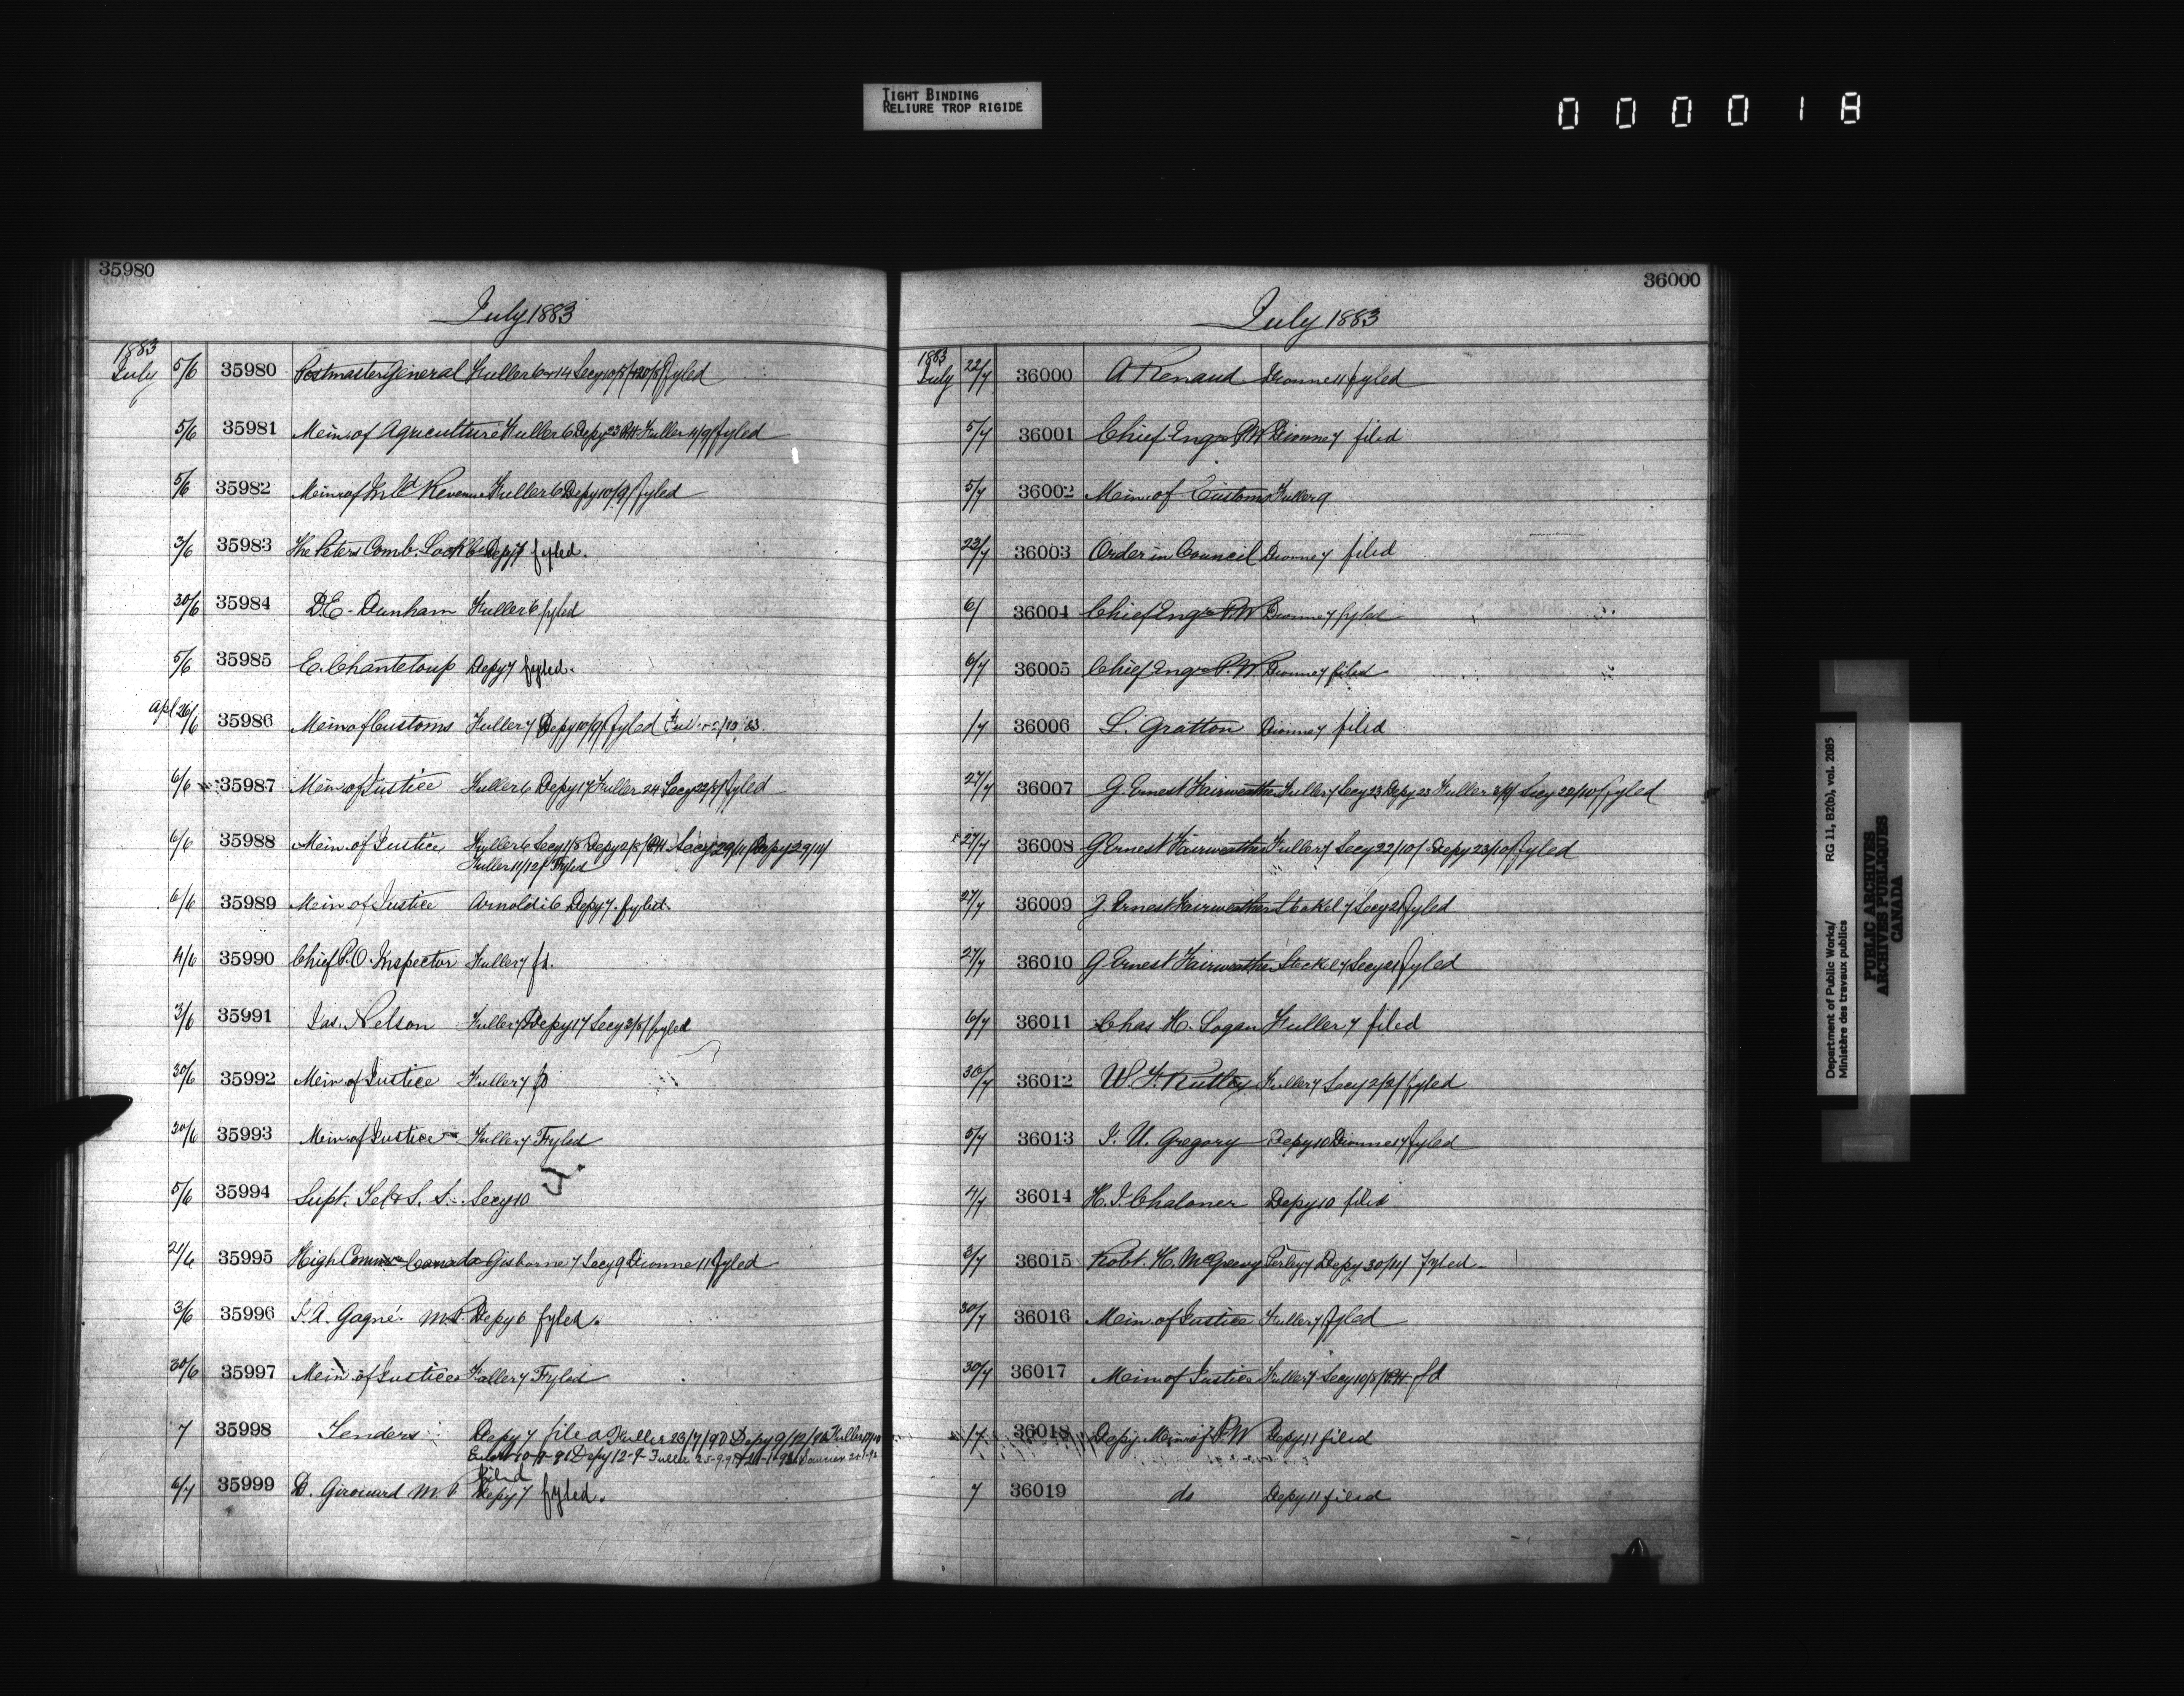 TIGHT BINDING
RELIURE TROP RIGIDE
0 0 0 0 1 8
35980
July 1883
1883
July 5/6 35980 Postmaster General Fuller 6 + 14 Secy 10/8/ fyled
5/6 35981 Min. of Agriculture Fuller 6 Depy 23 P.H. Fuller 4/9/ fyled
5/6 35982 Min. of Inld Revenue Fuller 6 Depy 10/9/ fyled
3/6 35983 The Peters Comb. Lock Co Depy 7 fyled.
30/6 35984 D.E. Dunham Fuller 6 fyled
5/6 35985 E. Chanteloup Depy 7 fyled.
Apl 26/6 35986 Min of Customs Fuller 7 Depy 10/9/ fyled
6/6 35987 Min of Justice Fuller 6 Depy 17 Fuller 24 Secy 22/8/ fyled
6/6 35988 Min. of Justice Fuller 6 Secy 1/8 Depy 2/8/ P.H. Secy 29/11/ Depy 29/11/
Fuller 11/12/ Fyled
6/6 35989 Min of Justice Arnoldi 6 Depy 7. fyled.
4/6 35990 Chief P.O. Inspector Fuller 7 fd.
3/6 35991 Jas. Nelson Fuller 7 Depy 17 Secy 3/8/ fyled
30/6 35992 Min of Justice Fuller 7 fd
30/6 35993 Min. of Justice Fuller 7 Fyled
5/6 35994 Supt. Tel & S. S. Secy 10
21/6 35995 High Commr Canada Gisborne 7 Secy 9 Dionne 11 fyled
3/6 35996 L.A. Gagné. M.P. Depy 6 fyled.
30/6 35997 Min of Justice Fuller 7 Fyled
7 35998 Tenders Depy 7 filed Fuller 23/7/90 Depy 9/12/90 Fuller
10-9-91 Depy 12-9- Fuller 25-9-91
filed
6/7 35999 D. Girouard M.P Depy 7 fyled.
36000
July 1883
1883
July 22/7 36000 A Renaud Dionne 11 fyled
5/7 36001 Chief Engr P.W Dionne 7 filed
5/7 36002 Min. of Customs Fuller 9
23/7 36003 Order in Council Dionne 7 filed
6/ 36004 Chief Engr P.W Dionne 7 fyled
6/7 36005 Chief Engr P.W Dionne 7 filed
/7 36006 L. Gratton Dionne 7 filed
27/7 36007 G Ernest Fairweather Fuller 7 Secy 23 Depy 23 Fuller 3/9/ Secy 22/10/ fyled
27/7 36008 G Ernest Fairweather Fuller 7 Secy 22/10/ Depy 23/10/ fyled
27/7 36009 G. Ernest Fairweather Steckel 7 Secy 21 fyled
27/7 36010 G Ernest Fairweather Steckel 7 Secy 21 fyled
6/7 36011 Chas H. Logan Fuller 7 filed
30/7 36012 W. F. Rutley Fuller 7 Secy 2/2/ fyled
5/7 36013 J. U. Gregory Depy 10 Dionne 17 fyled
4/7 36014 H. J. Chaloner Depy 10 filed
3/7 36015 Robt. H. McGreevy Perley 7 Depy 30/11/ fyled
30/7 36016 Min. of Justice Fuller 7 fyled
30/7 36017 Min of Justice Fuller 7 Secy 10/8/ P.H. fd
/7 36018 Depy Min of P.W Depy 11 filed
7 36019 do Depy 11 filed
Department of Public Works/
Ministère des travaux publics
RG 11, B2(b), vol. 2085
PUBLIC ARCHIVES
ARCHIVES PUBLIQUES
CANADA